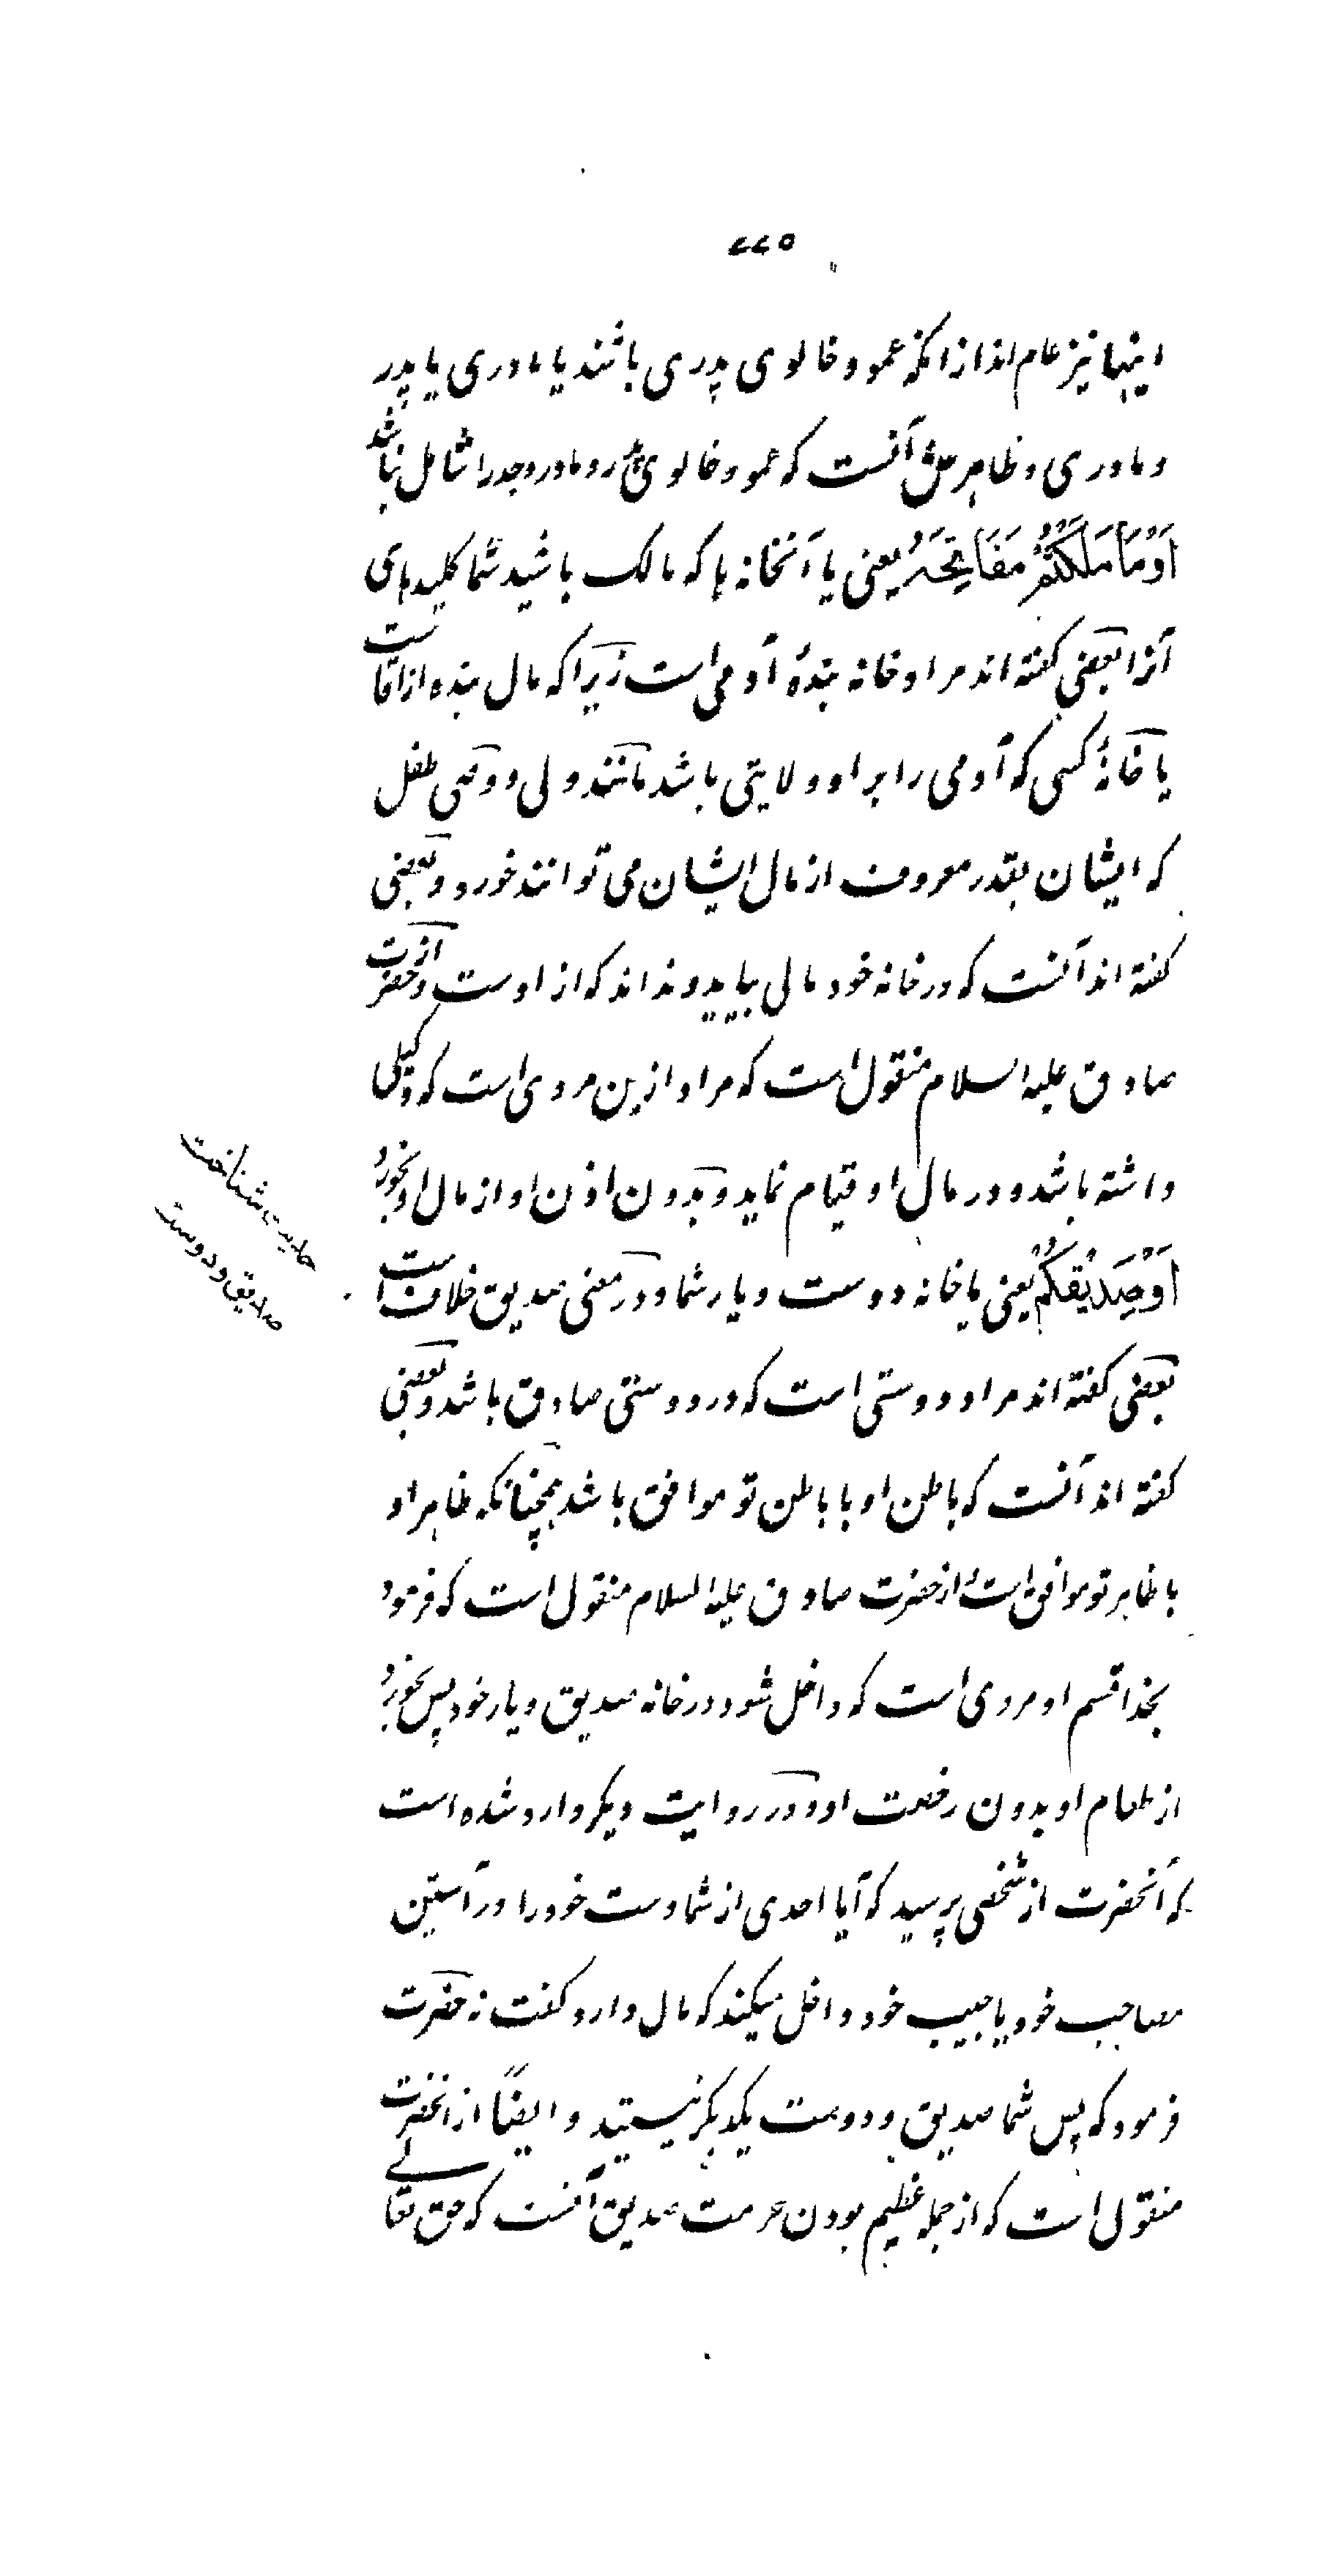 ۵۷۷
اینها نیز عام اند از انکه عمو و خالوی پدری باشند یا مادری یا پدر
و مادری و ظاهرش آنست که عمو و خالوی پدر و مادر و جد را شامل نباشد
اَوْمَا مَلَكْتُمْ مَفَاتِحَهُ یعنی یا آنخانه ها که مالک باشید شما کلیدهای
آنرا بعضی گفته اند مراد خانه بندۀ آدمی است زیرا که مال بنده از آقاست
یا خانۀ کسی که آدمی را بر او ولایتی باشد مانند ولی و وصی طفل
که ایشان بقدر معروف از مال ایشان می توانند خورد و بعضی
گفته اند آنست که در خانه خود مالی بیابد و نداند که از اوست و از حضرت
صادق علیه السلام منقول است که مراد ازین مردی است که وکیلی
داشته باشد و در مال او قیام نماید و بدون اذن او از مال او بخورد
اَوْ صَدِيْقِكُمْ یعنی یا خانه دوست و یار شما و در معنی صدیق خلاف است
بعضی گفته اند مراد دوستی است که در دوستی صادق باشد و بعضی
گفته اند آنست که باطن او با باطن تو موافق باشد همچنانکه ظاهر او
با ظاهر تو موافق است و از حضرت صادق علیه السلام منقول است که فرمود
بخدا قسم او مردی است که داخل شود در خانه صدیق و یار خود پس بخورد
از طعام او بدون رخصت او و در روایت دیگر وارد شده است
که آنحضرت از شخصی پرسید که آیا احدی از شما دست خود را در آستین
مصاحب خود یا حبیب خود داخل میکند که مال دارد گفت نه حضرت
فرمود که پس شما صدیق و دوست یکدیگر نیستید و ایضاً از آنحضرت
منقول است که از جمله عظیم بودن حرمت صدیق آنست که حق تعالے
حدیث شناخت
صدیق و دوست